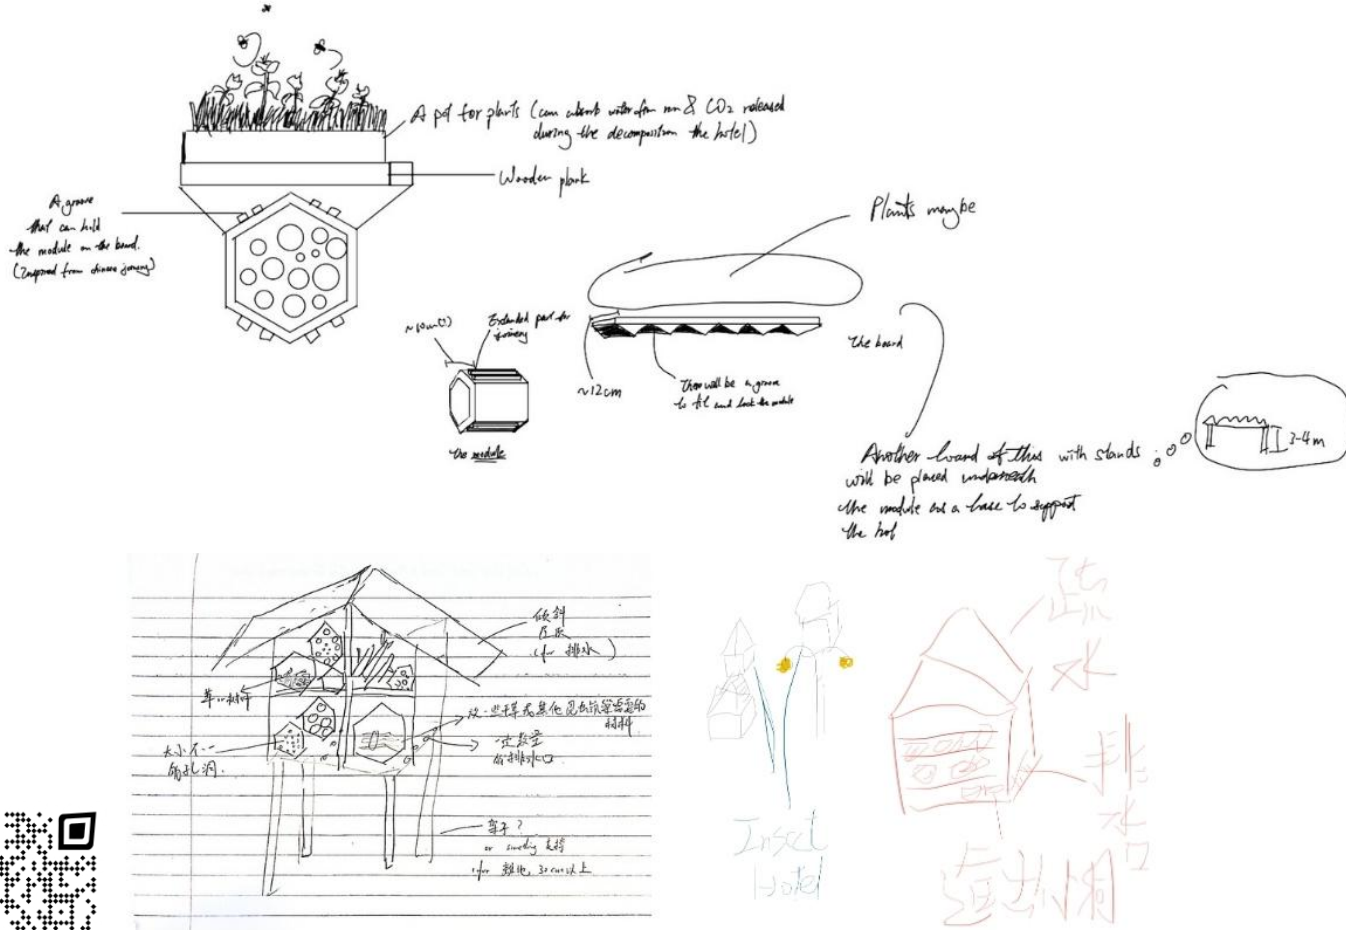 A pot for plants (can absorb water from rain & CO2 released
during the decomposition the hotel)
Wooden plank
A groove
that can hold
the module on the board.
(Inspired from chinese joinery)
Plants maybe
Extended part for
joinery
the module
~12cm
There will be a groove
to fit and lock the module
the board
Another board of this with stands
will be placed underneath
the module as a base to support
the hot
3-4m
倾斜
屋顶
(for 排水)
大小不一
的孔洞
放一些干草或其他昆虫筑巢需要的
材料
一定数量
的排水口
架子?
or 支持
for 离地, 30cm以上
Insect
Hotel
疏
水
排
水
口